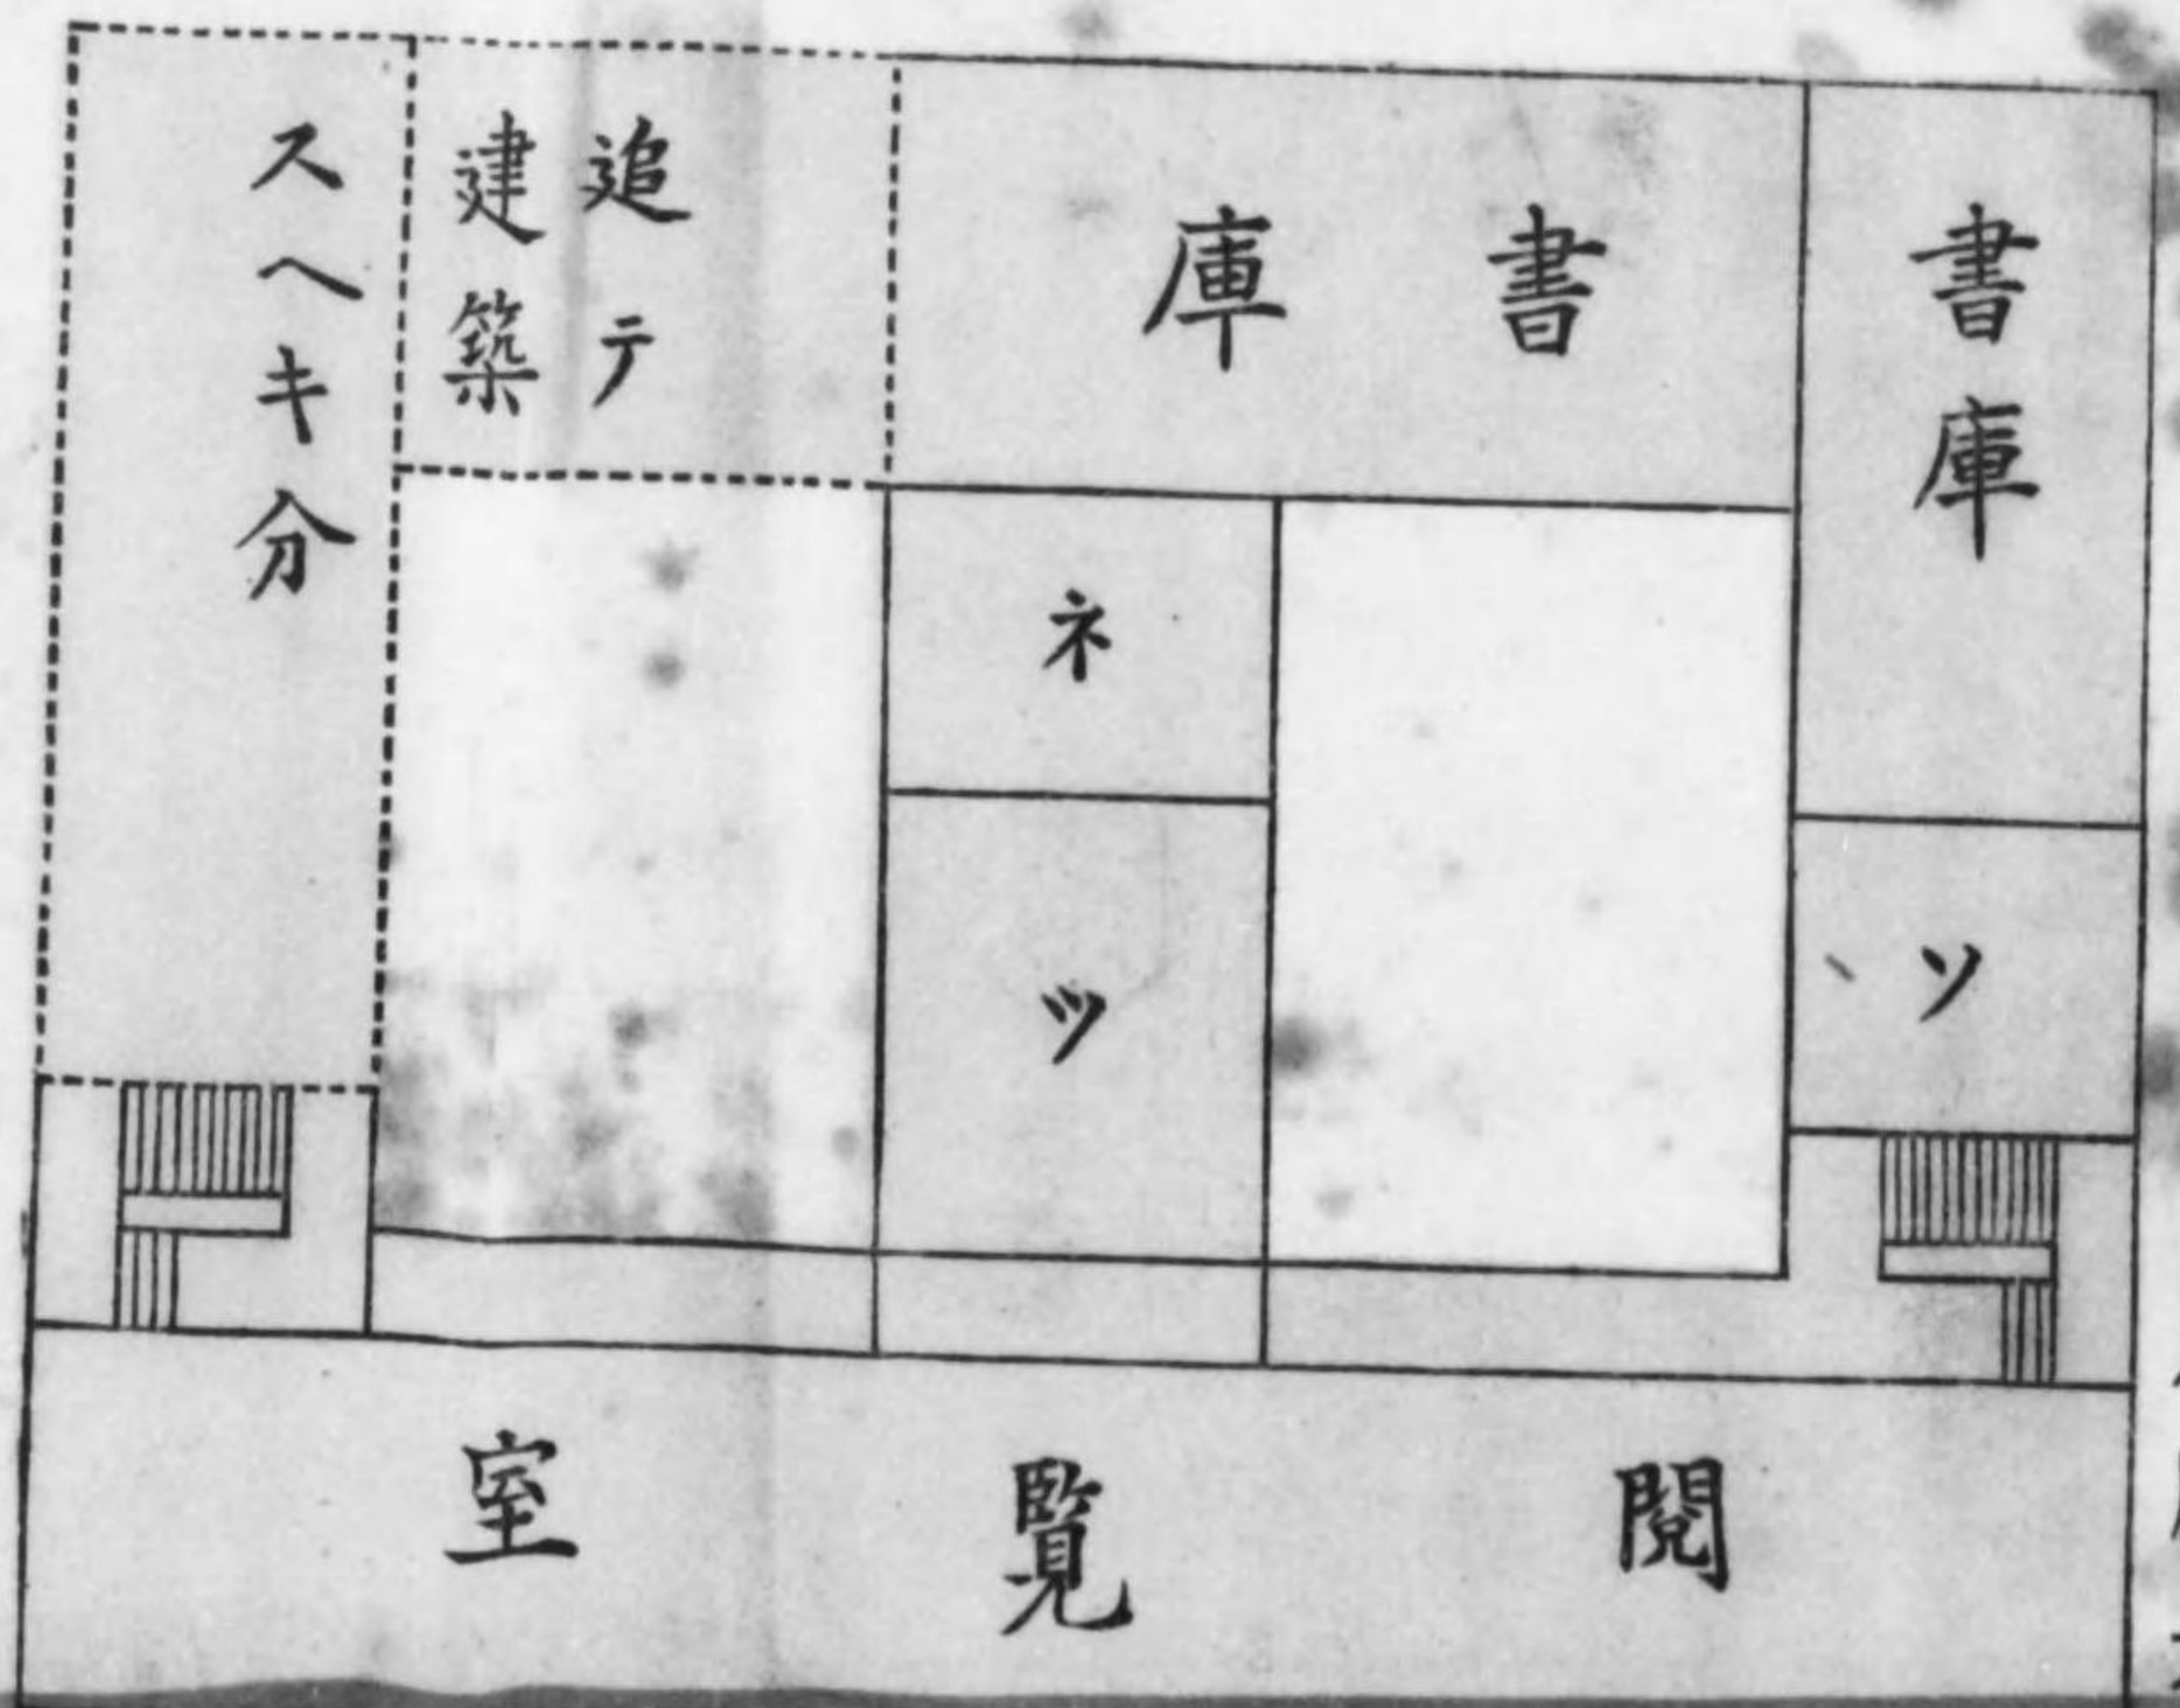 書庫
書庫
追テ
建築
スヘキ分
ネ
ツ
ソ
閲覧室